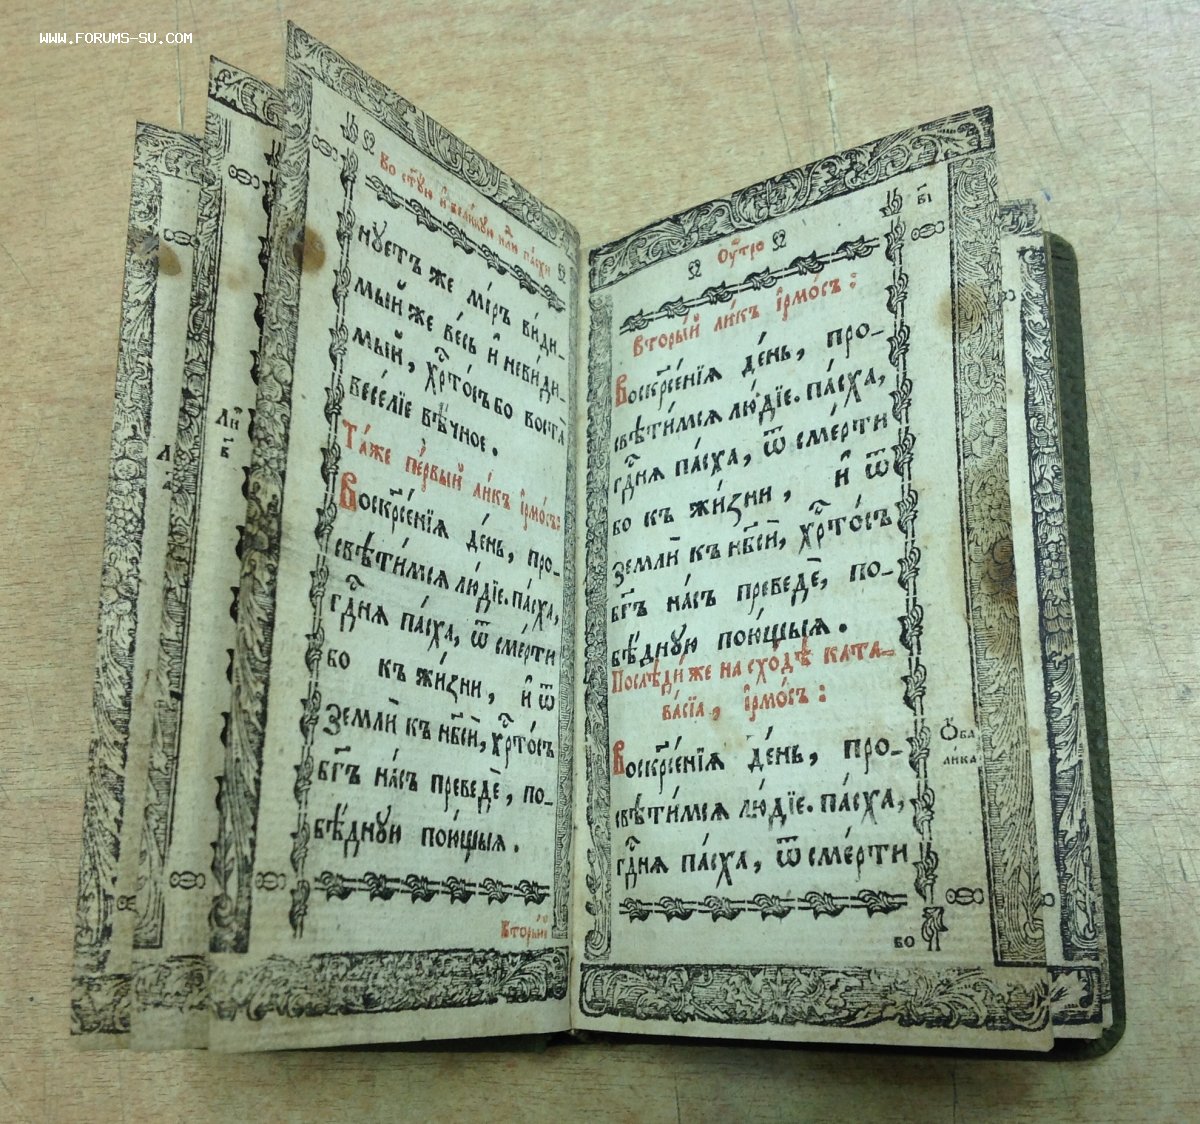 WWW.FORUMS-SU.COM
Во ст҃ꙋю и҆ вели́кꙋю нл҃ю па́схи
нꙋетъ же ми́ръ ви́ди_
мый же ве́сь и҆ неви́ди_
мый, хр҇то́съ бо воста̀
весе́лїе вѣ́чное.
Та́же пе́рвый ли́къ і҆рмо́съ:
Воскрⷭ҇е́нїѧ де́нь, про_
свѣти́мсѧ лю́дїе. па́сха,
гдⷭ҇нѧ па́сха, ѿ сме́рти
бо къ жи́зни, и҆ ѿ
землѝ къ нб҃сѝ, хрⷭ҇то́съ
бг҃ъ на́съ преведѐ, по_
бѣ́днꙋю пою́щыѧ.
Вторы́й
Лиⷭ҇
в҃
Оу҆́тро
в҃і
Вторы́й ли́къ і҆рмо́съ:
Воскрⷭ҇е́нїѧ де́нь, про_
свѣти́мсѧ лю́дїе. па́сха,
гдⷭ҇нѧ па́сха, ѿ сме́рти
бо къ жи́зни, и҆ ѿ
землѝ къ нб҃сѝ, хрⷭ҇то́съ
бг҃ъ на́съ преведѐ, по_
бѣ́днꙋю пою́щыѧ.
Послѣди́ же на схо́дѣ ката_
ва́сїа, і҆рмо́съ:
Воскрⷭ҇е́нїѧ де́нь, про_
свѣти́мсѧ лю́дїе. па́сха,
гдⷭ҇нѧ па́сха, ѿ сме́рти
Ѻ҆ба
ли́ка
бо